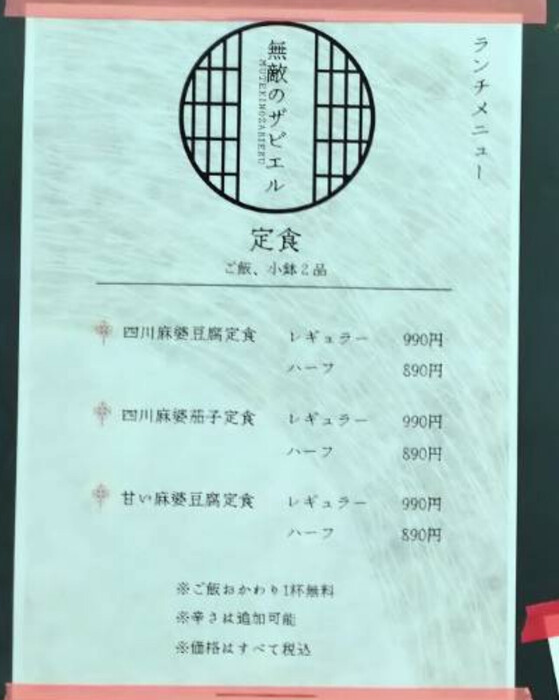 ランチメニュー
無敵のザビエル
MUTEKINOZABIERU
定食
ご飯、小鉢2品
四川麻婆豆腐定食 レギュラー 990円
ハーフ 890円
四川麻婆茄子定食 レギュラー 990円
ハーフ 890円
甘い麻婆豆腐定食 レギュラー 990円
ハーフ 890円
※ご飯おかわり1杯無料
※辛さは追加可能
※価格はすべて税込